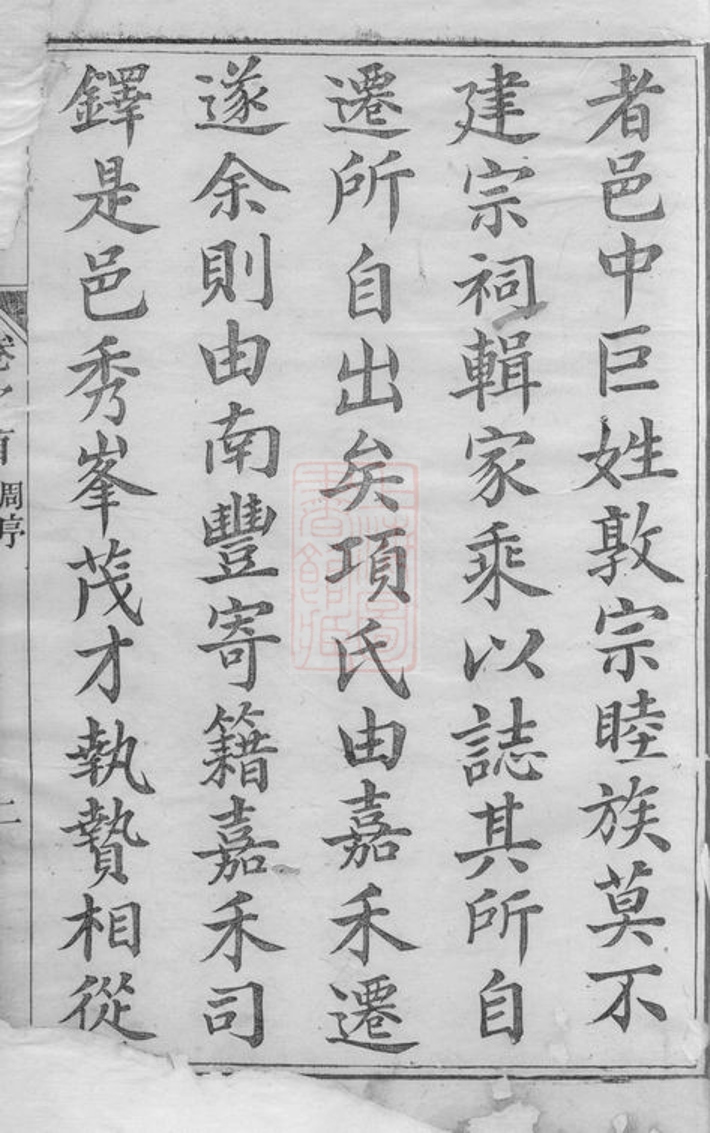 者邑中巨姓敦宗睦族莫不
建宗祠輯家乘以誌其所自
遷所自出矣項氏由嘉禾遷
遂余則由南豐寄籍嘉禾司
鐸是邑秀峯茂才執贄相從
卷之首 周序 二